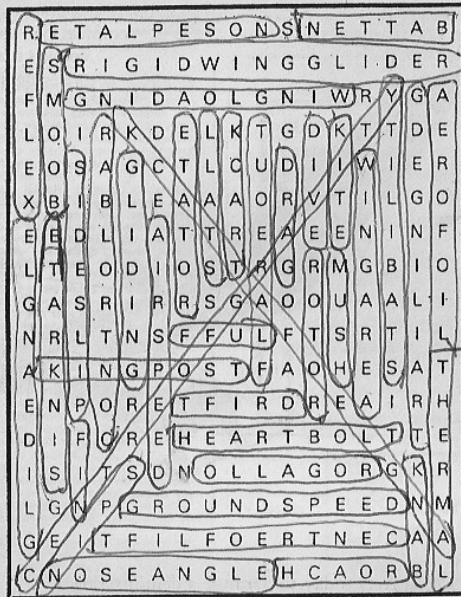 R E T A L P E S O N S N E T T A B
E S R I G I D W I N G G L I D E R
F M G N I D A O L G N I W R Y G A
L O I R K D E L K T G D K T T D E
E O S A G C T L C U D I I W I E R
X B I B L E A A A O R V T I L G O
E E D L I A T T R E A E E N I N F
L T E O D I O S T R G R M G B I O
G A S R I R R S G A O O U A A L I
N R L T N S F F U L F T S R T I L
A K I N G P O S T F A O H E S A T
E N P O R E T F I R D R E A I R H
D I F C R E H E A R T B O L T T E
I S I T S D N O L L A G O R G K R
L G N P G R O U N D S P E E D N M
G E I T F I L F O E R T N E C A A
C N O S E A N G L E H C A O R B L